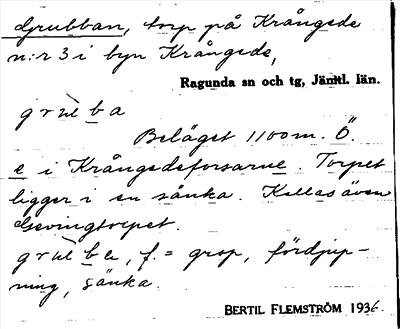 Grubban, torp på Krångede
n:r 3 i byn Krångede,
Ragunda sn och tg, Jämtl. län.
grùb̲a
Beläget 1100 m. Ö.
e i Krångedeforsarne. Torpet
ligger i en sänka. Kallas även
torpet.
grùb̲e, f. = grop, fördjup-
ning, sänka.
BERTIL FLEMSTRÖM 1936.